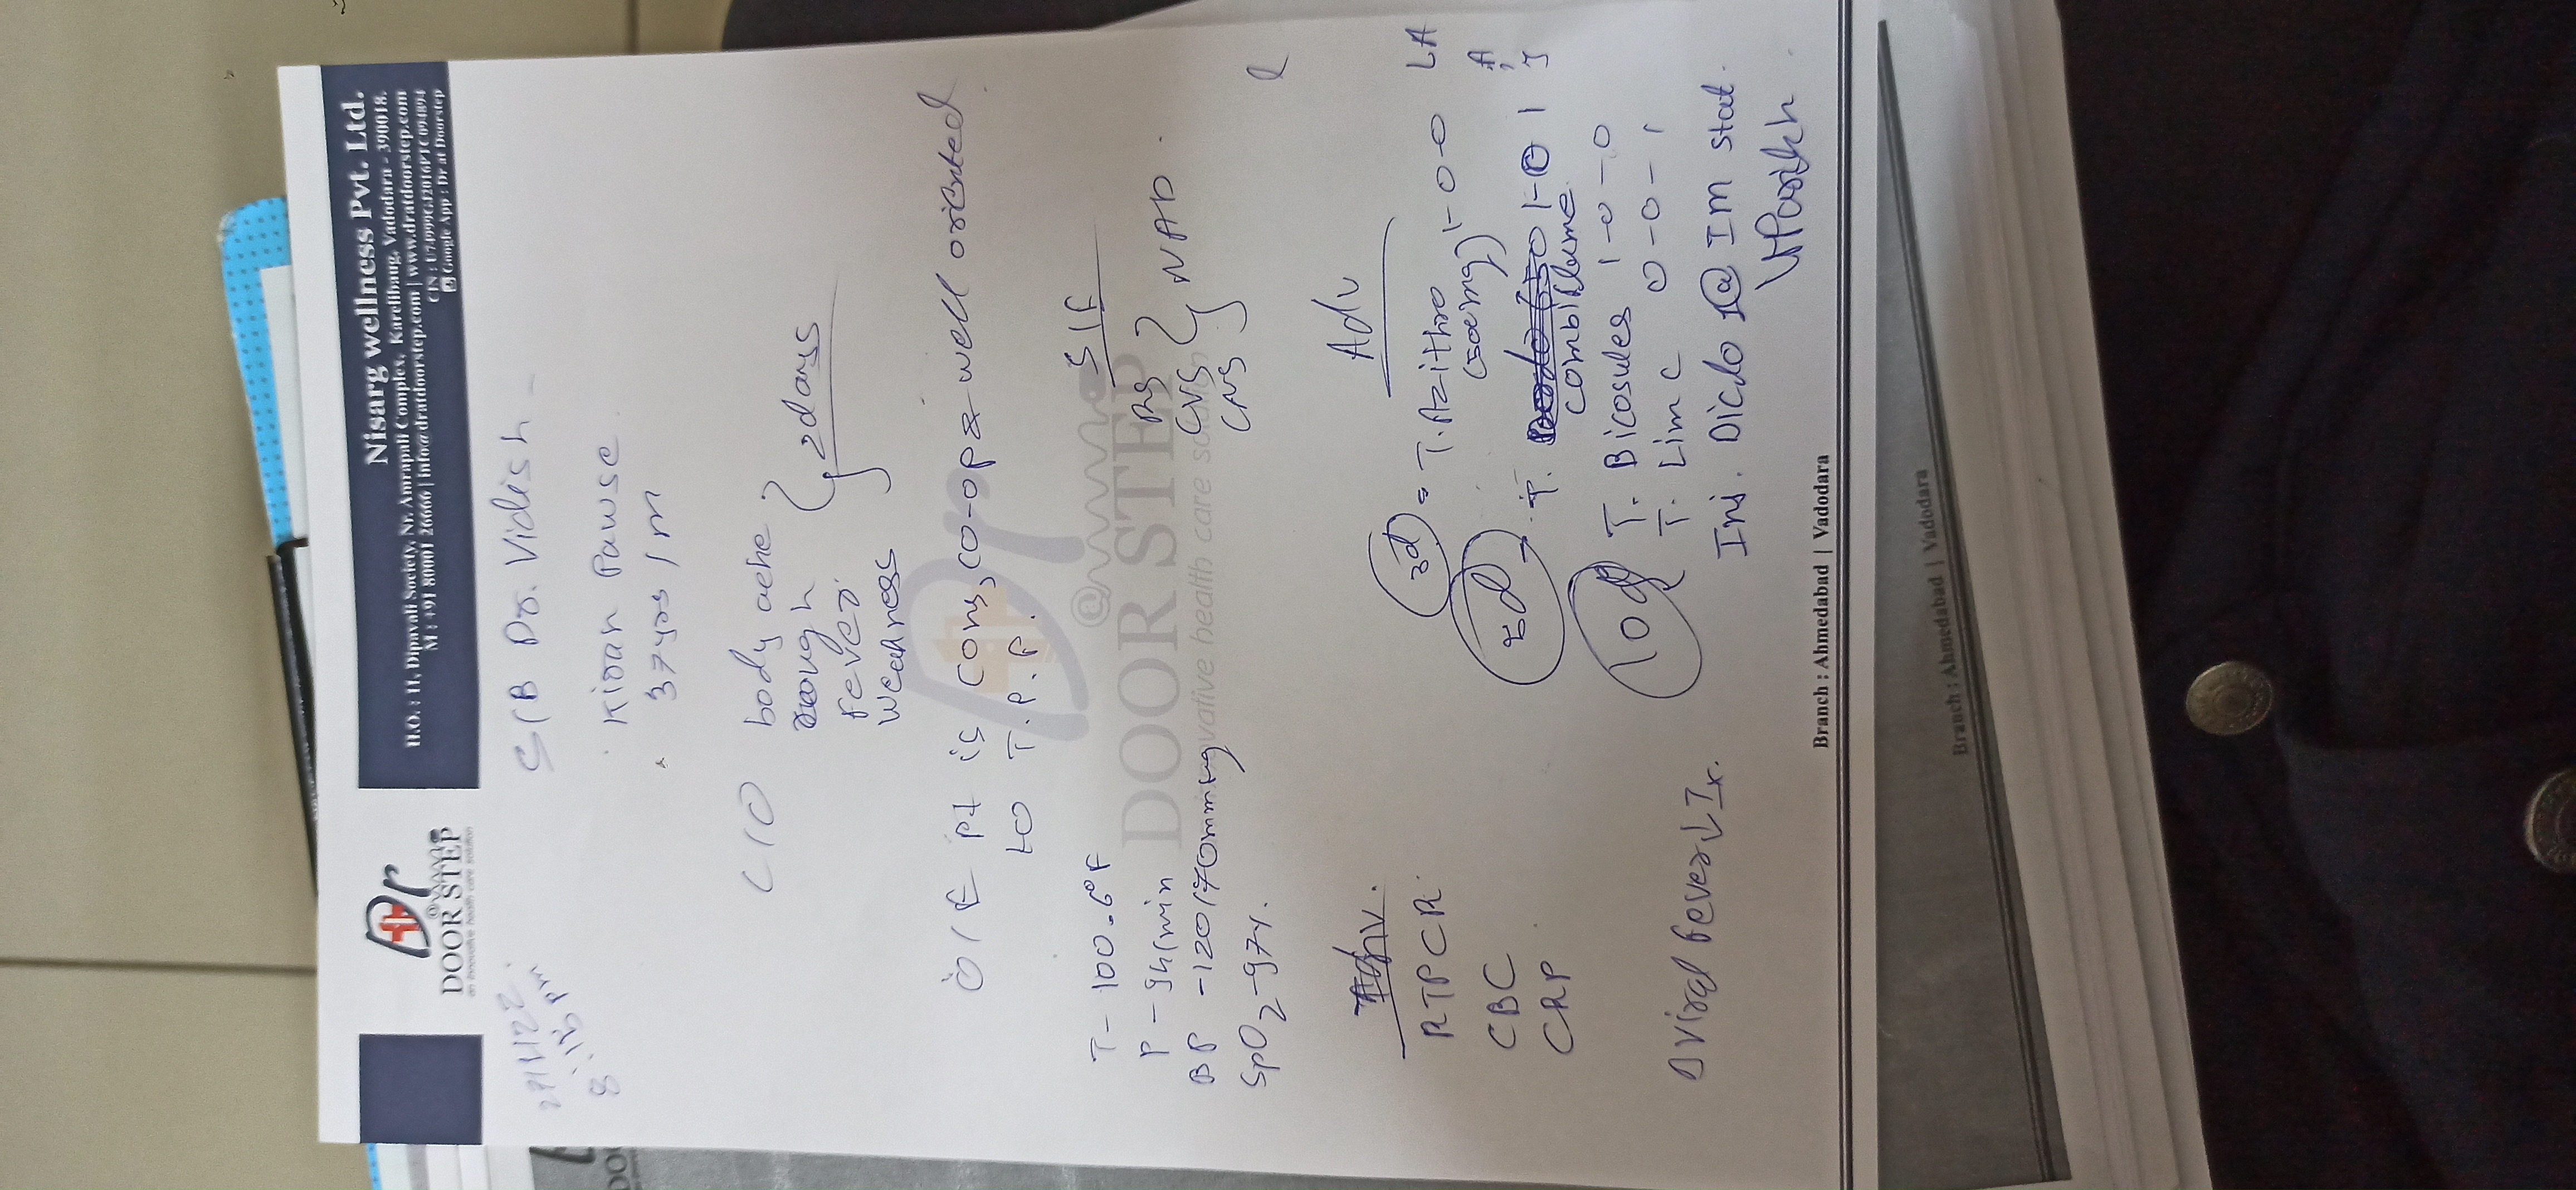 Dr
@
DOOR STEP
an innovative health care solution
Nisarg wellness Pvt. Ltd.
H.O. : 11, Dipavali Society, Nr. Amrapali Complex, Karelibaug, Vadodara - 390018.
M : +91 80001 26666 | info@dratdoorstep.com | www.dratdoorstep.com
CIN : U74999GJ2016PTC094894
Google App : Dr at Doorstep
27/1/22
8:15 pm
S/B Dr. Vidish
Kiran Pawse
37yrs / M
C/O body ache
cough
fever
weakness
2 days
O/E pt is cons, co-op & well oriented
to T.P.P.
T - 100.6°F
P - 94/min
BP - 120/70mmHg
SpO2 - 97%.
S/E
RS
CVS
CNS
NAD
Dr
@
DOOR STEP
innovative health care solution
Inv.
RTPCR
CBC
CRP
Adv
3d
T. Azithro 1-0-0
(500mg)
5d
T. 1-0-1
combiflame
10d
T. Bicosules 1-0-0
T. Lim C 0-0-1
Inj. Diclo 1@ IM stat.
Δ Viral fever ↓ Ix.
VParikh
LA
A
Branch : Ahmedabad | Vadodara
Branch : Ahmedabad | Vadodara